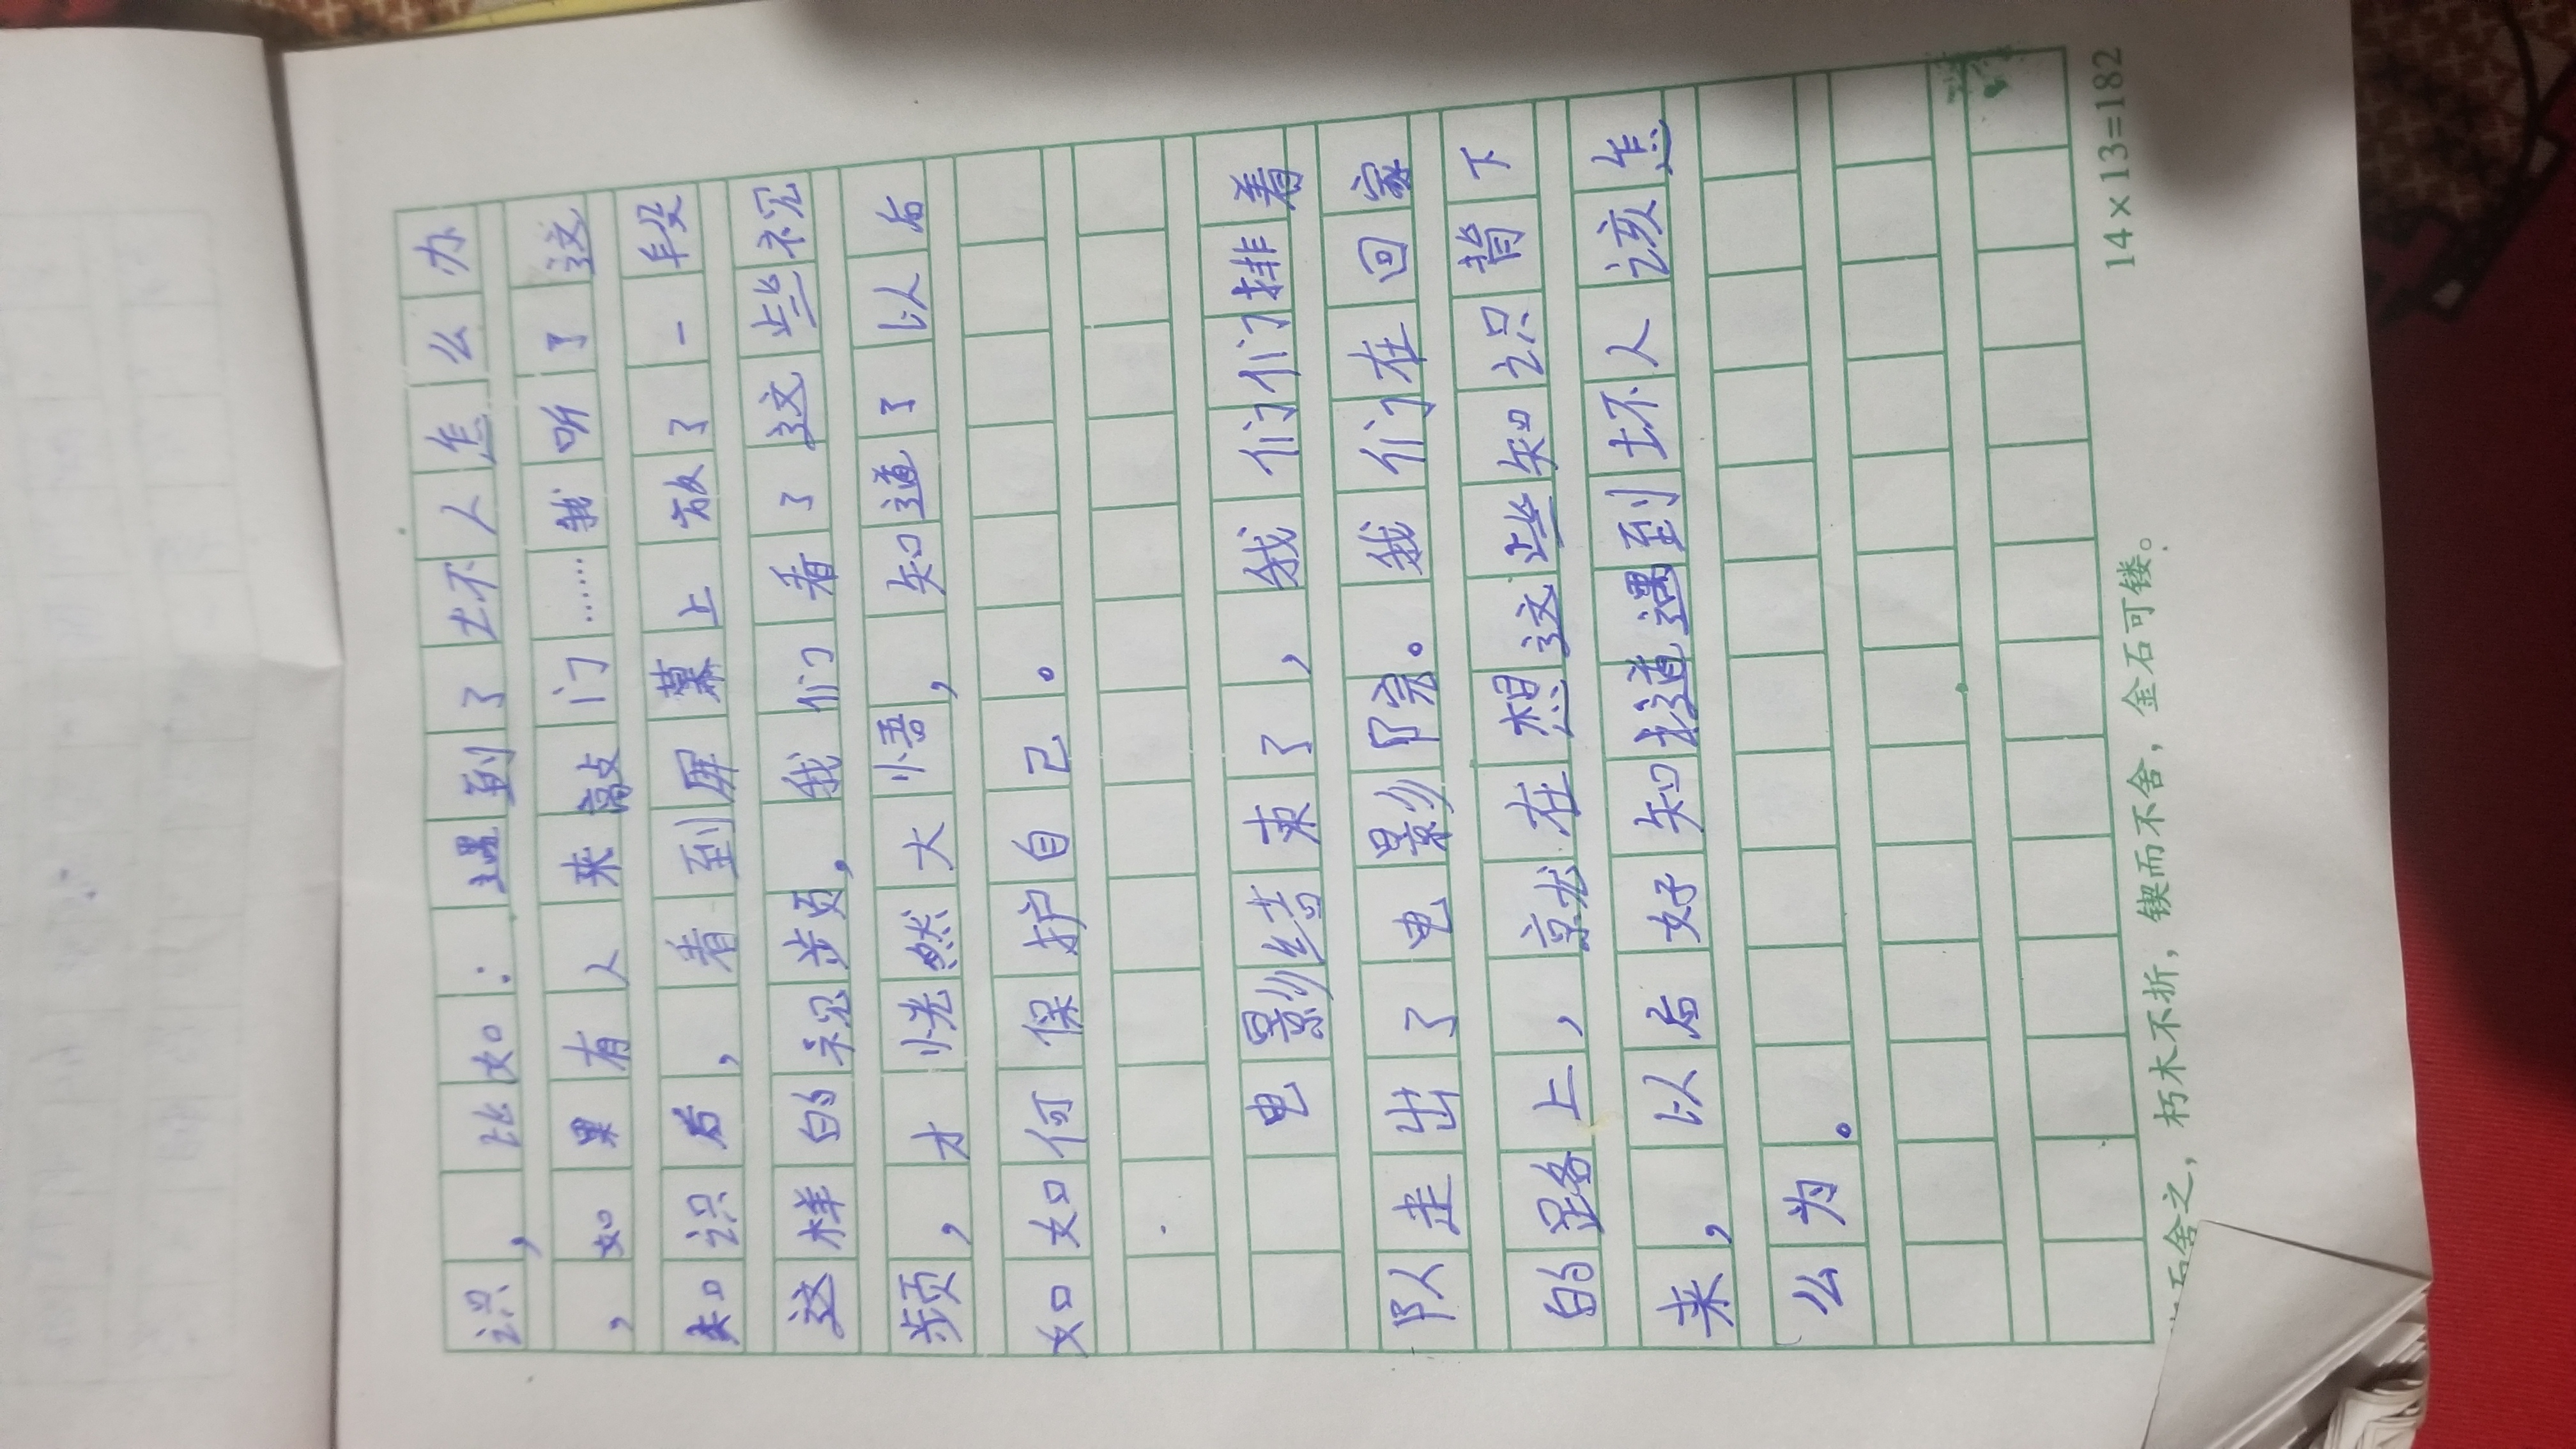 识，比如：遇到了坏人怎么办
，如果有人来敲门……我听了这
知识后，看到屏幕上放了一段
这样的视频，我们看了这些视
频，才恍然大悟，知道了以后
如何保护自己。
电影结束了，我们们排着
队走出了电影院。我们在回家
的路上，就在想这些知识背下
来，以后好知道遇到坏人该怎
么为。
石舍之，朽木不折，锲而不舍，金石可镂。
14×13=182